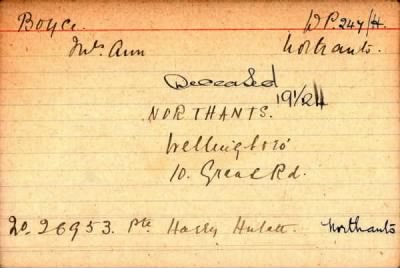 Boyce. W.P. 247/H.
Mrs Ann Northants.
Deceased
19/1/24
NORTHANTS.
Wellingboro'
10. Great Rd.
20. 26953. Pte Harry Hulatt. Northants